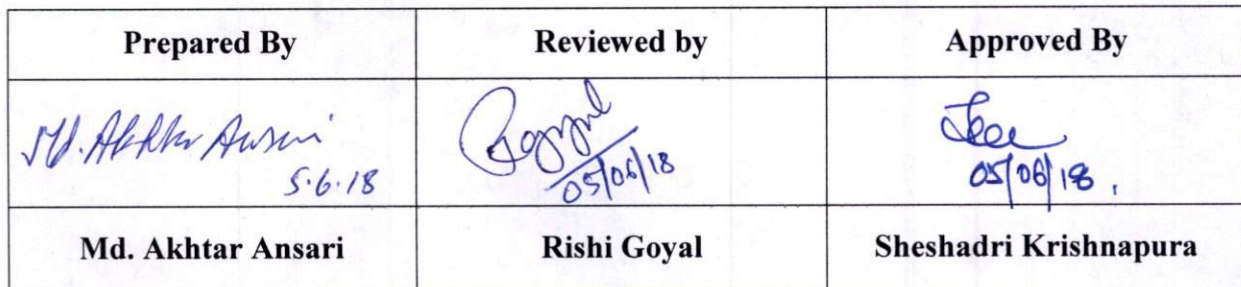 Prepared By
Reviewed by
Approved By
Md. Akhtar Ansari
5.6.18
Rgoyal
05/06/18
05/06/18.
Md. Akhtar Ansari
Rishi Goyal
Sheshadri Krishnapura